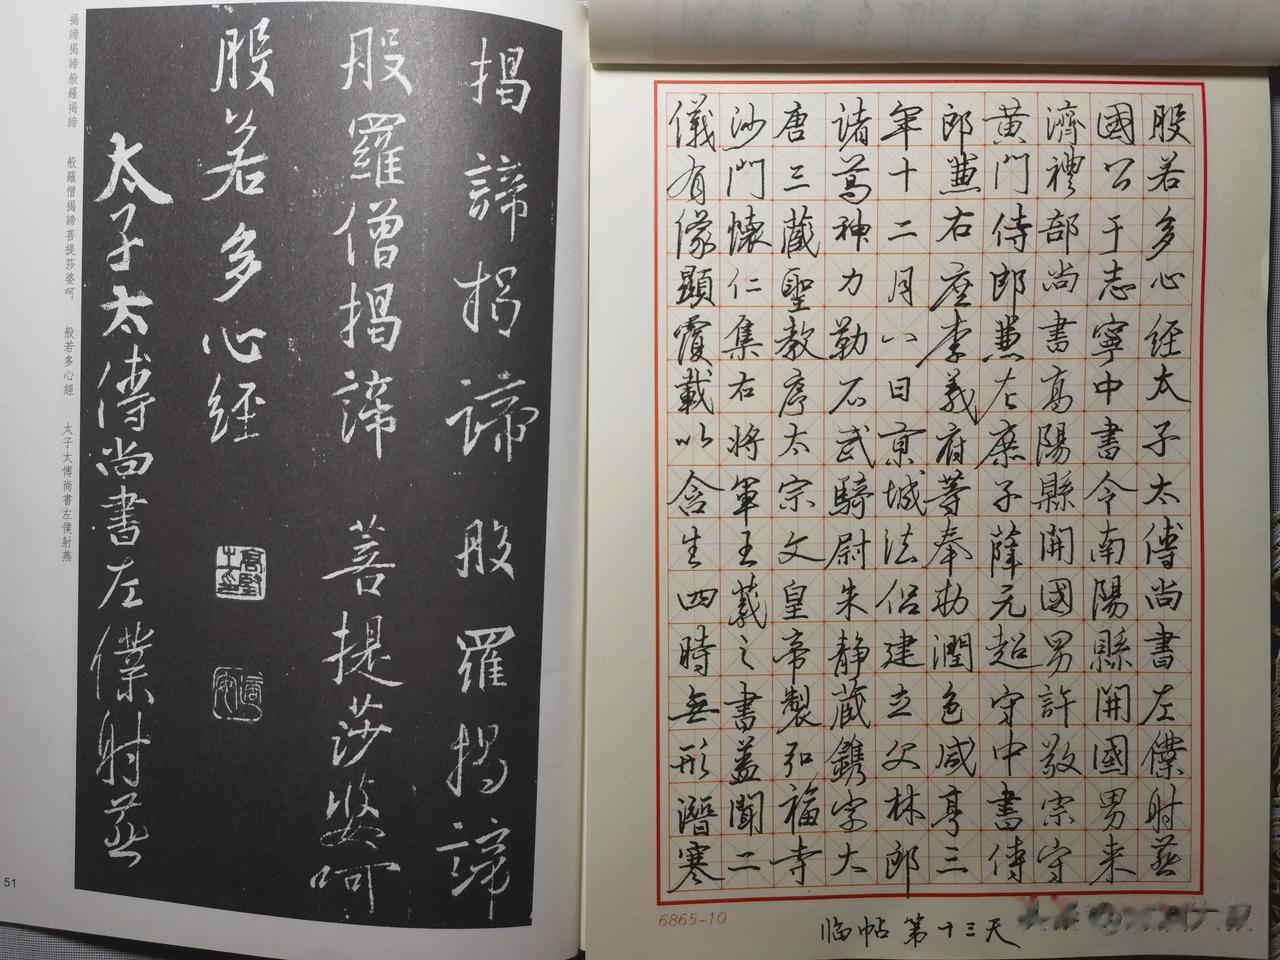 揭諦揭諦般羅揭諦　般羅僧揭諦菩提莎婆呵　般若多心經　太子太傅尚書左僕射燕
揭諦揭諦般羅揭諦
般羅僧揭諦菩提莎婆呵
般若多心經
太子太傅尚書左僕射燕
51
般若多心經太子太傅尚書左僕射燕
國公于志寧中書令南陽縣開國男来
濟禮部尚書高陽縣開國男許敬宗守
黃門侍郎兼左庶子薛元超守中書侍
郎兼右庶李義府等奉勅潤色咸亨三
年十二月八日京城法侶建立父林郎
諸葛神力勒石武騎尉朱静蔵鐫字大
唐三藏聖教序太宗文皇帝製弘福寺
沙門懷仁集右将軍王羲之書蓋聞二
儀有像顯覆載以含生四時無形潛寒
6865-10
临帖第十三天